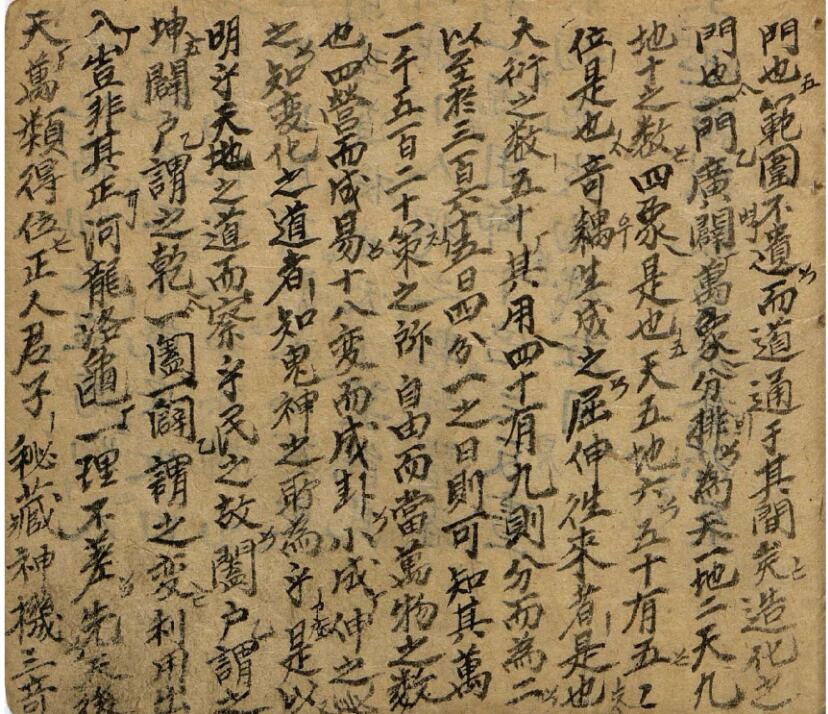 門也範圍不遺而道通于其間矣造化之
門也一門廣闢萬象分排為天一地二天九
地十之数四象是也天五地六五十有五之
位是也奇耦生成之屈伸徃來者是也
大衍之数五十其用四十有九則分而為二
以至於三百六十五日四分一之日則可知其萬
一千五百二十策之 自由而當萬物之数
也四營而成易十八変而成卦小成伸之
之知変化之道者知鬼神之所為乎是以
明乎天地之道而察乎民之故闔户謂之
坤闢户謂之乾一闔一闢謂之変利用出
入豈非其正河龍洛龜一理不差先天後
天萬類得位正人君子秘藏神機三奇